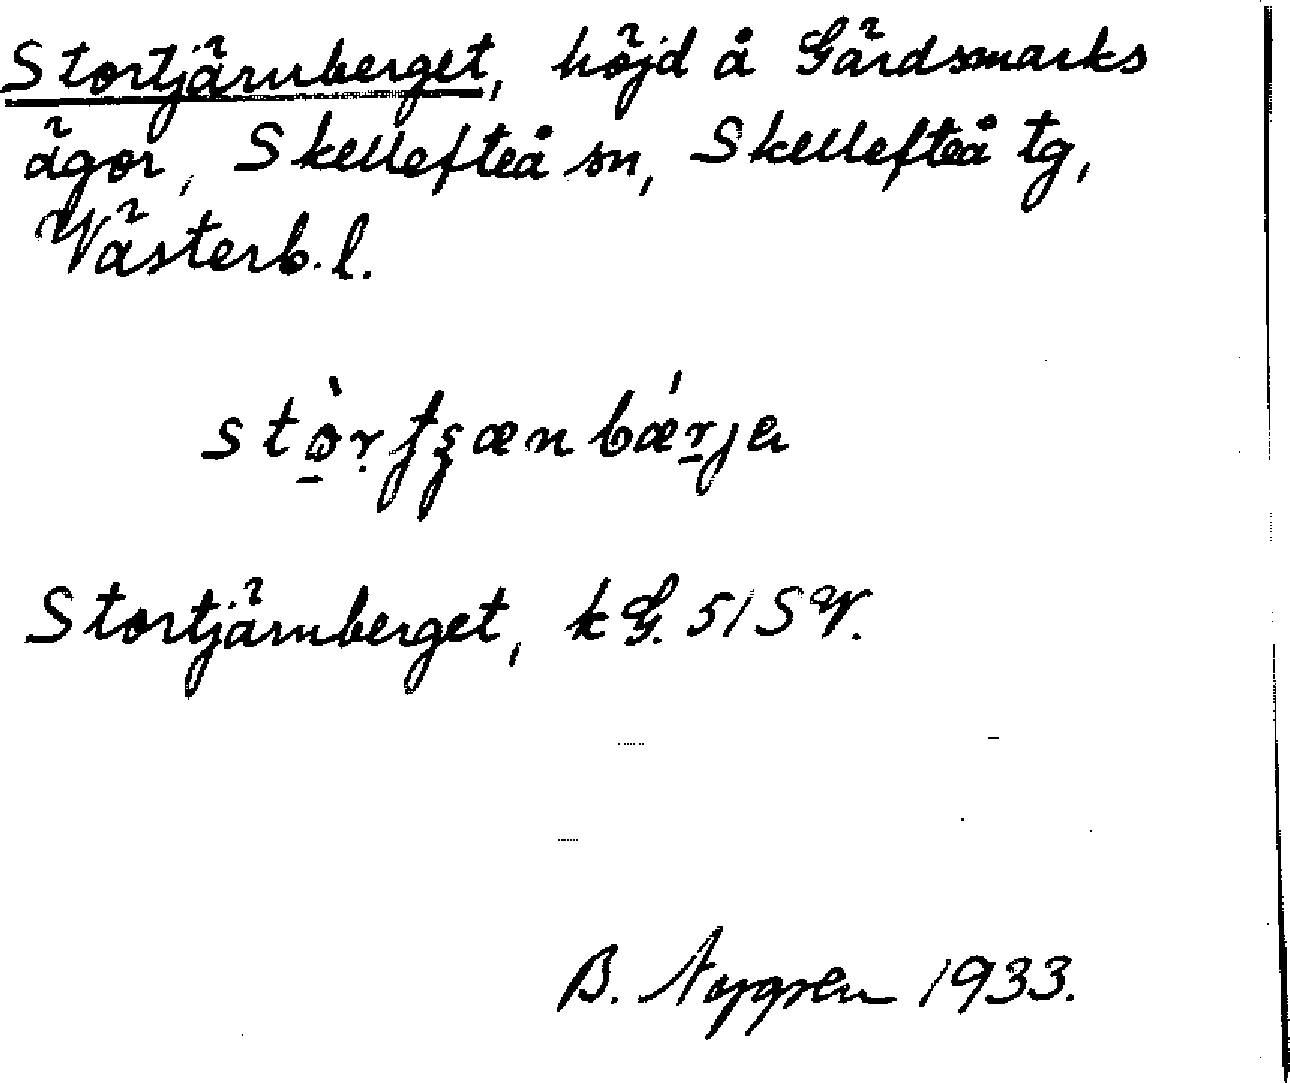 Stortjärnberget, höjd å Gärdsmarks
ägor, Skellefteå sn, Skellefteå tg,
Västerb. l.
Stortjärnberget, kG. 51 SV.
B. 1933.